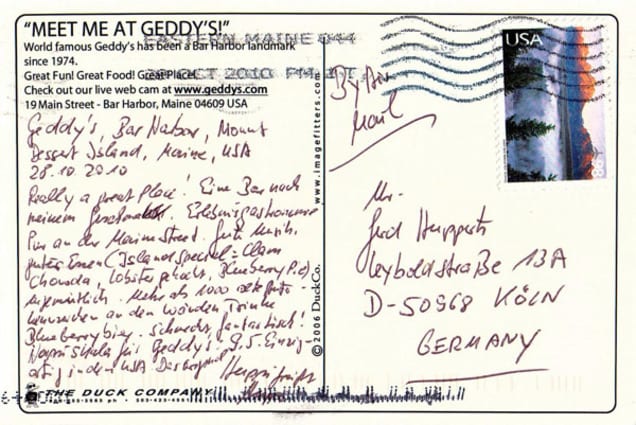 "MEET ME AT GEDDY'S!"
World famous Geddy's has been a Bar Harbor landmark
since 1974.
Great Fun! Great Food! Great Place!
Check out our live web cam at www.geddys.com
19 Main Street - Bar Harbor, Maine 04609 USA
EASTERN MAINE 044
OCT 2010 PM
Geddy's, Bar Harbor, Mount
Dessert Island, Maine, USA
28.10.2010
Really a great Place! Eine Bar nach
meinem Geschmack. Erlebnisgastronomie
Pur an der Mainstreet. Gute Musik,
gutes Essen (Island special = Clam
Chowda, Lobster, Blueberry Pie)
Mehr als 1000 alte Auto-
kennzeichen an den Wänden. Trinke
Blueberry bier - schmeckt fantastisch!
für Geddy's: 9,5. Einzig-
artig in den USA.
THE DUCK COMPANY
© 2006 DuckCo. www.imagefitters.com
By Air
Mail
USA
98
Hr.
Gerd
Leyboldstraße 13A
D-50968 KÖLN
GERMANY